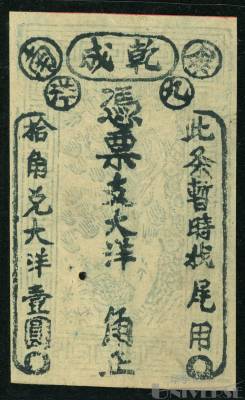 乾成
此条暫時找尾用
憑票支大洋 角正
拾角兌大洋壹圓
UNIVERSE